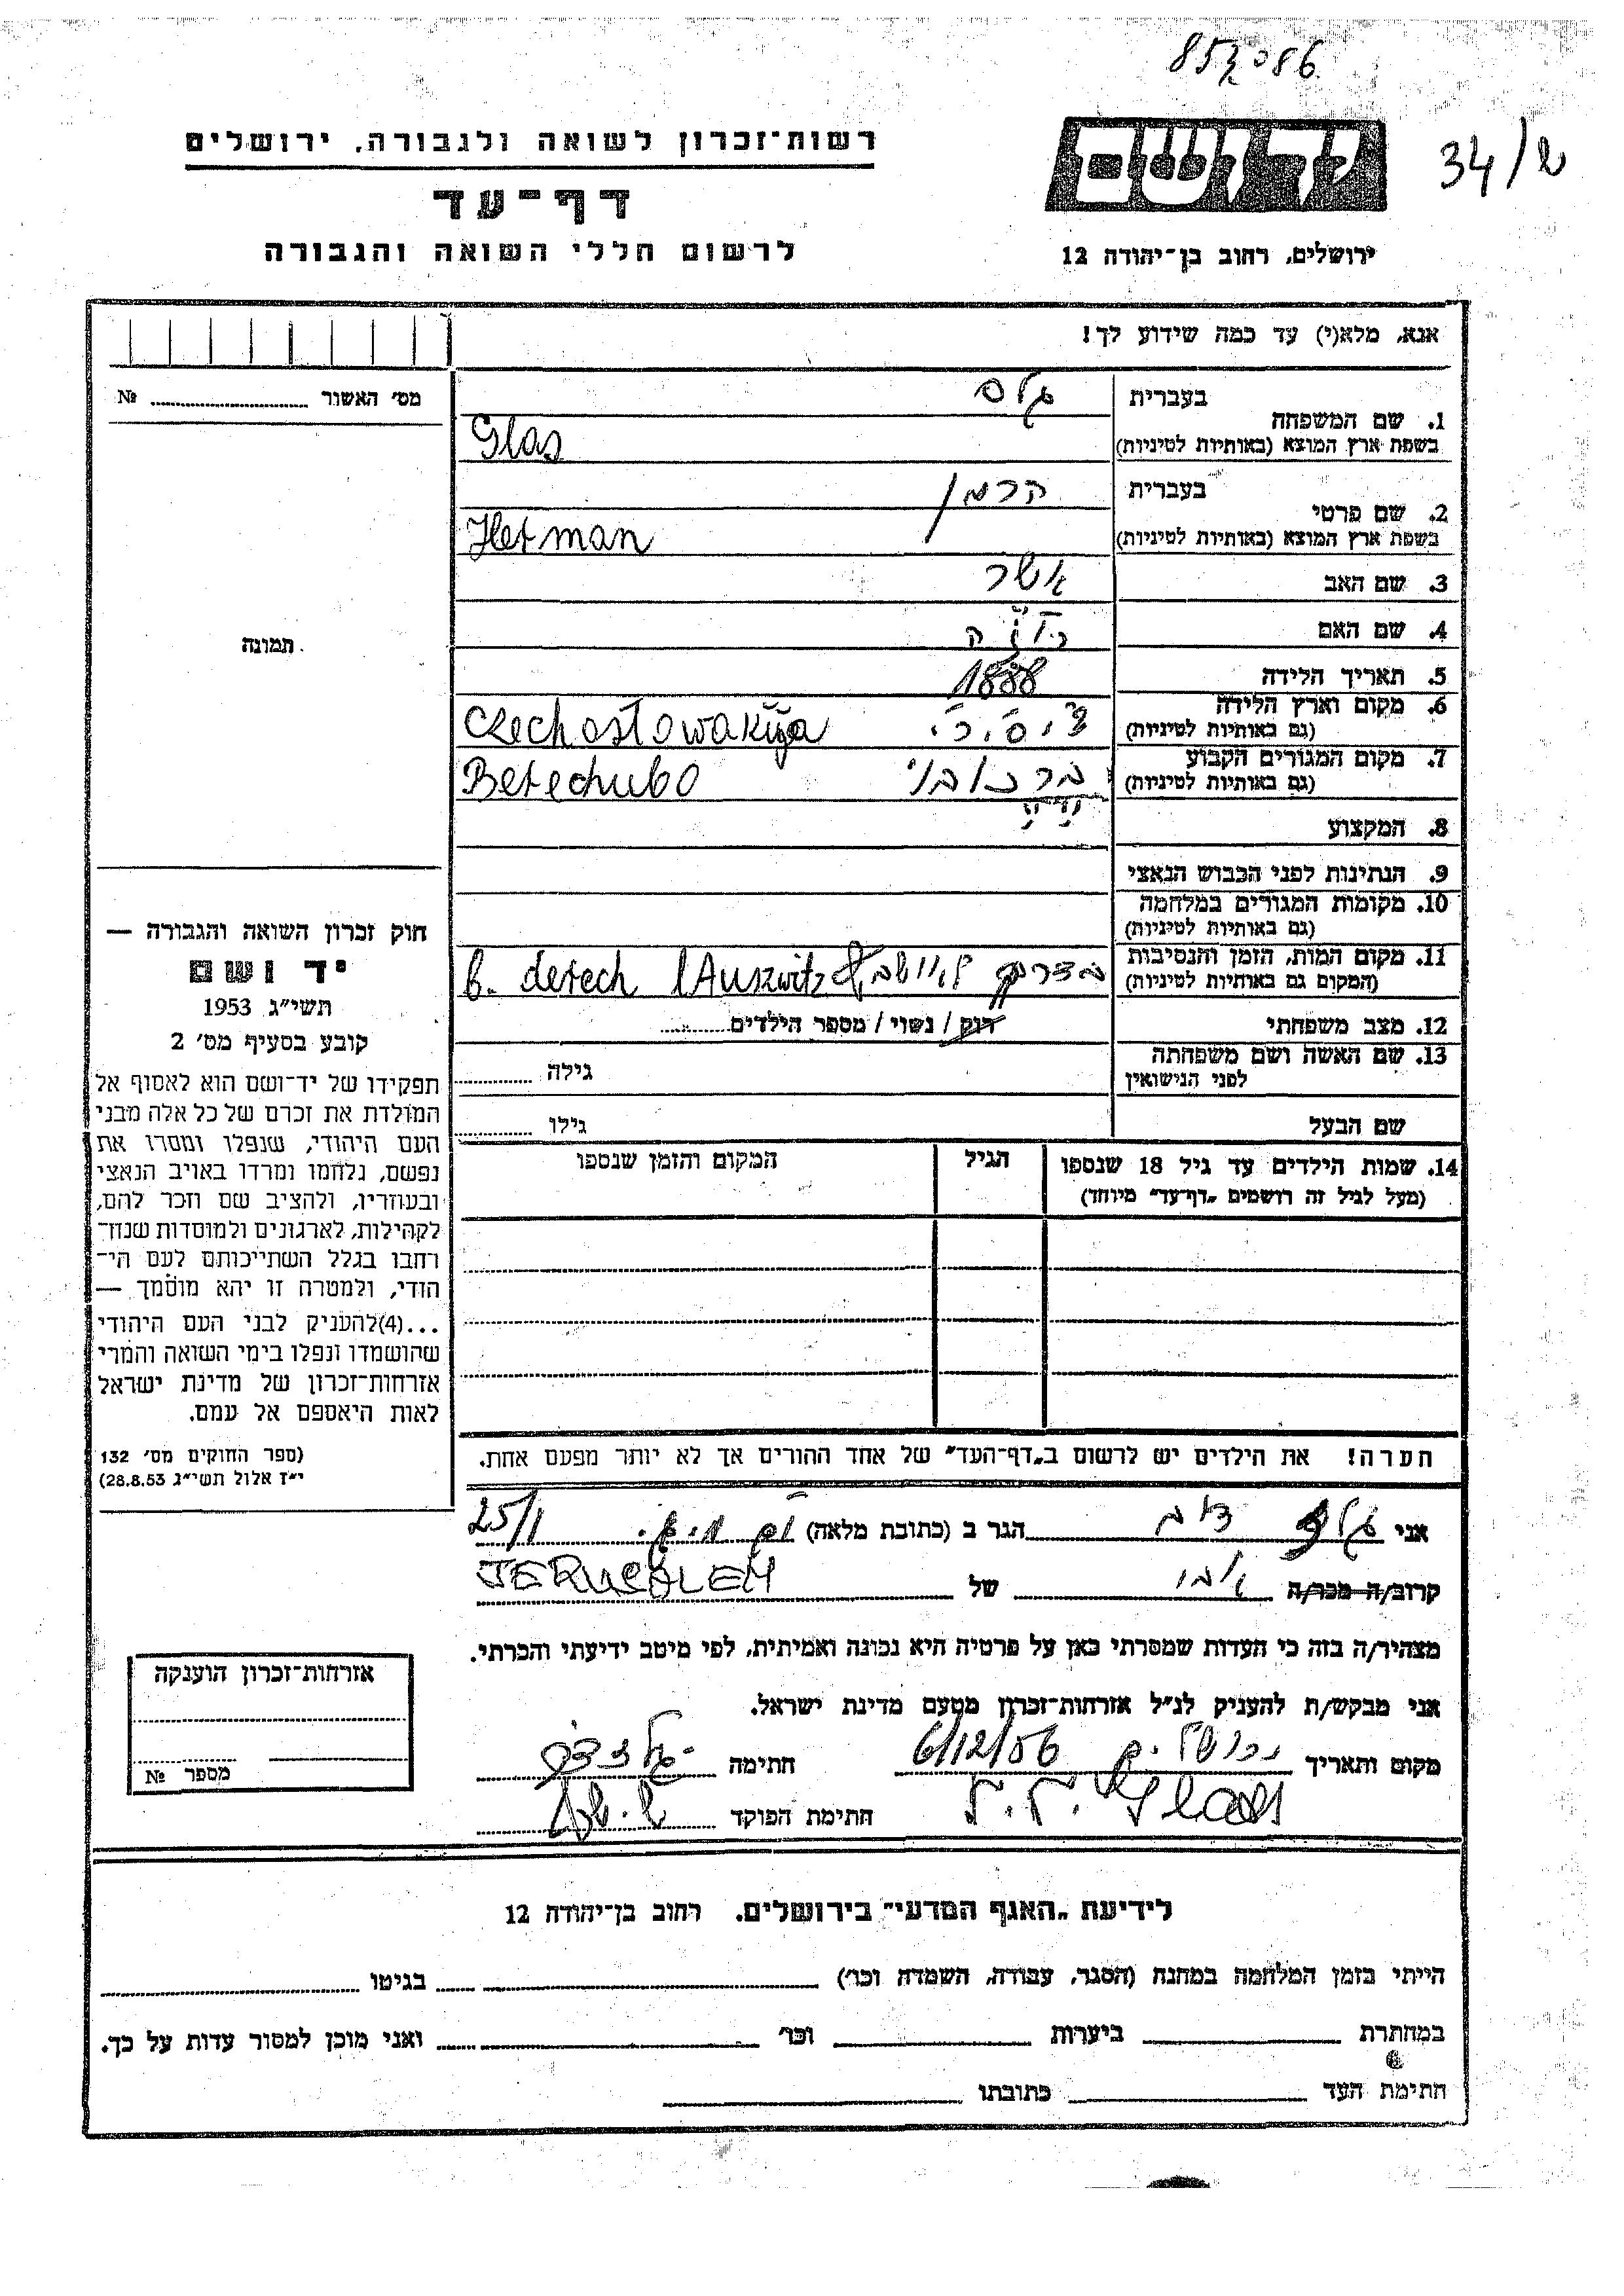 853086
34/ש
יד ושם
רשות־זכרון לשואה ולגבורה, ירושלים
דף־עד
לרשום חללי השואה והגבורה
ירושלים, רחוב בן־יהודה 12
אנא, מלא(י) עד כמה שידוע לך!
מס׳ האשור № 
1. שם המשפחה
בעברית גלס
בשפת ארץ המוצא (באותיות לטיניות) Glas
2. שם פרטי
בעברית הרמן
בשפת ארץ המוצא (באותיות לטיניות) Herman
3. שם האב אשר
4. שם האם
5. תאריך הלידה 1888
6. מקום וארץ הלידה
(גם באותיות לטיניות) צ׳.ס.ר. Czechosłowakija
7. מקום המגורים הקבוע
(גם באותיות לטיניות) Berechubo
8. המקצוע
9. הנתינות לפני הכבוש הנאצי
10. מקומות המגורים במלחמה
(גם באותיות לטיניות)
11. מקום המות, הזמן והנסיבות
(המקום גם באותיות לטיניות) בדרך b. derech lAuszwitz
12. מצב משפחתי רוק / נשוי / מספר הילדים
13. שם האשה ושם משפחתה
לפני הנישואין גילה
שם הבעל גילו
14. שמות הילדים עד גיל 18 שנספו הגיל המקום והזמן שנספו
(מעל לגיל זה רושמים „דף־עד״ מיוחד)
הערה! את הילדים יש לרשום ב„דף־העד״ של אחד ההורים אך לא יותר מפעם אחת.
תמונה
חוק זכרון השואה והגבורה —
יד ושם
תשי״ג 1953
קובע בסעיף מס׳ 2
תפקידו של יד־ושם הוא לאסוף אל
המולדת את זכרם של כל אלה מבני
העם היהודי, שנפלו ומסרו את
נפשם, נלחמו ומרדו באויב הנאצי
ובעוזריו, ולהציב שם וזכר להם,
לקהילות, לארגונים ולמוסדות שנח־
רבו בגלל השתייכותם לעם הי־
הודי, ולמטרה זו יהא מוסמך —
...(4)להעניק לבני העם היהודי
שהושמדו ונפלו בימי השואה והמרי
אזרחות־זכרון של מדינת ישראל
לאות היאספם אל עמם.
(ספר החוקים מס׳ 132
י״ז אלול תשי״ג 28.8.53)
אני גלס הגר ב (כתובת מלאה) 25/1
קרוב/ה מכר/ה של JERUSALEM
מצהיר/ה בזה כי העדות שמסרתי כאן על פרטיה היא נכונה ואמיתית, לפי מיטב ידיעתי והכרתי.
אני מבקש/ת להעניק לנ״ל אזרחות־זכרון מטעם מדינת ישראל.
מקום ותאריך ירושלים 6/12/56 חתימה
Glas
חתימת הפוקד
אזרחות־זכרון הוענקה
מספר №
לידיעת „האגף המדעי״ בירושלים, רחוב בן־יהודה 12
הייתי בזמן המלחמה במחנה (הסגר, עבודה, השמדה וכו׳) בגיטו
במחתרת ביערות וכו׳ ואני מוכן למסור עדות על כך.
חתימת העד כתובתו